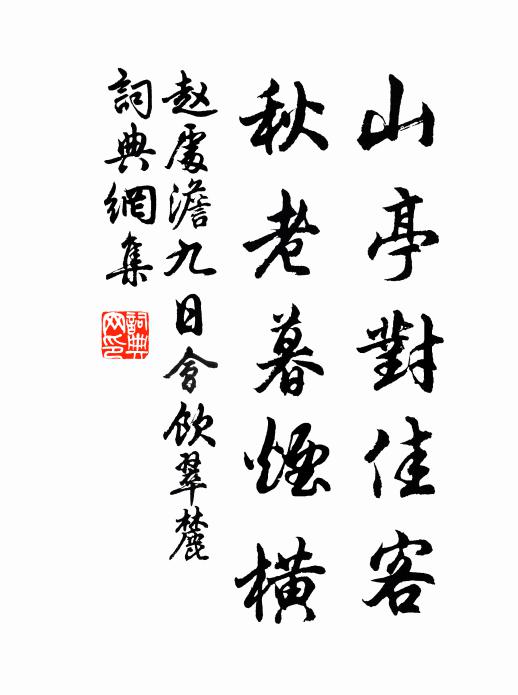 山亭對佳客
秋老暮煙橫
赵處澹九日會飲翠麓
詞典網集
詞典
网印